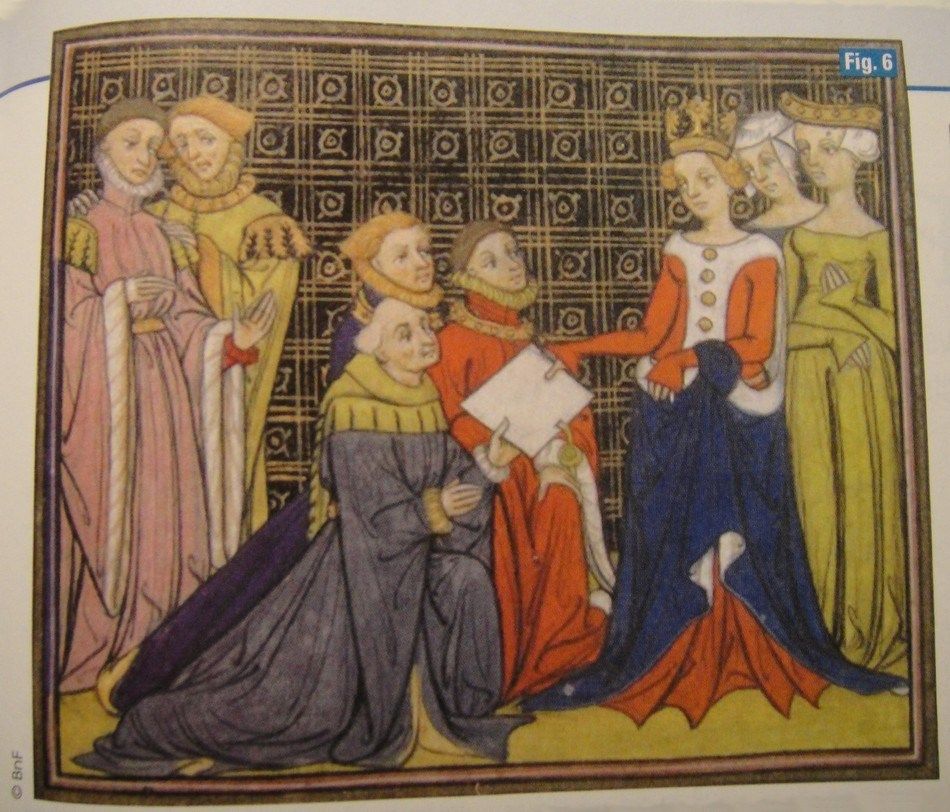 Fig. 6
© BnF